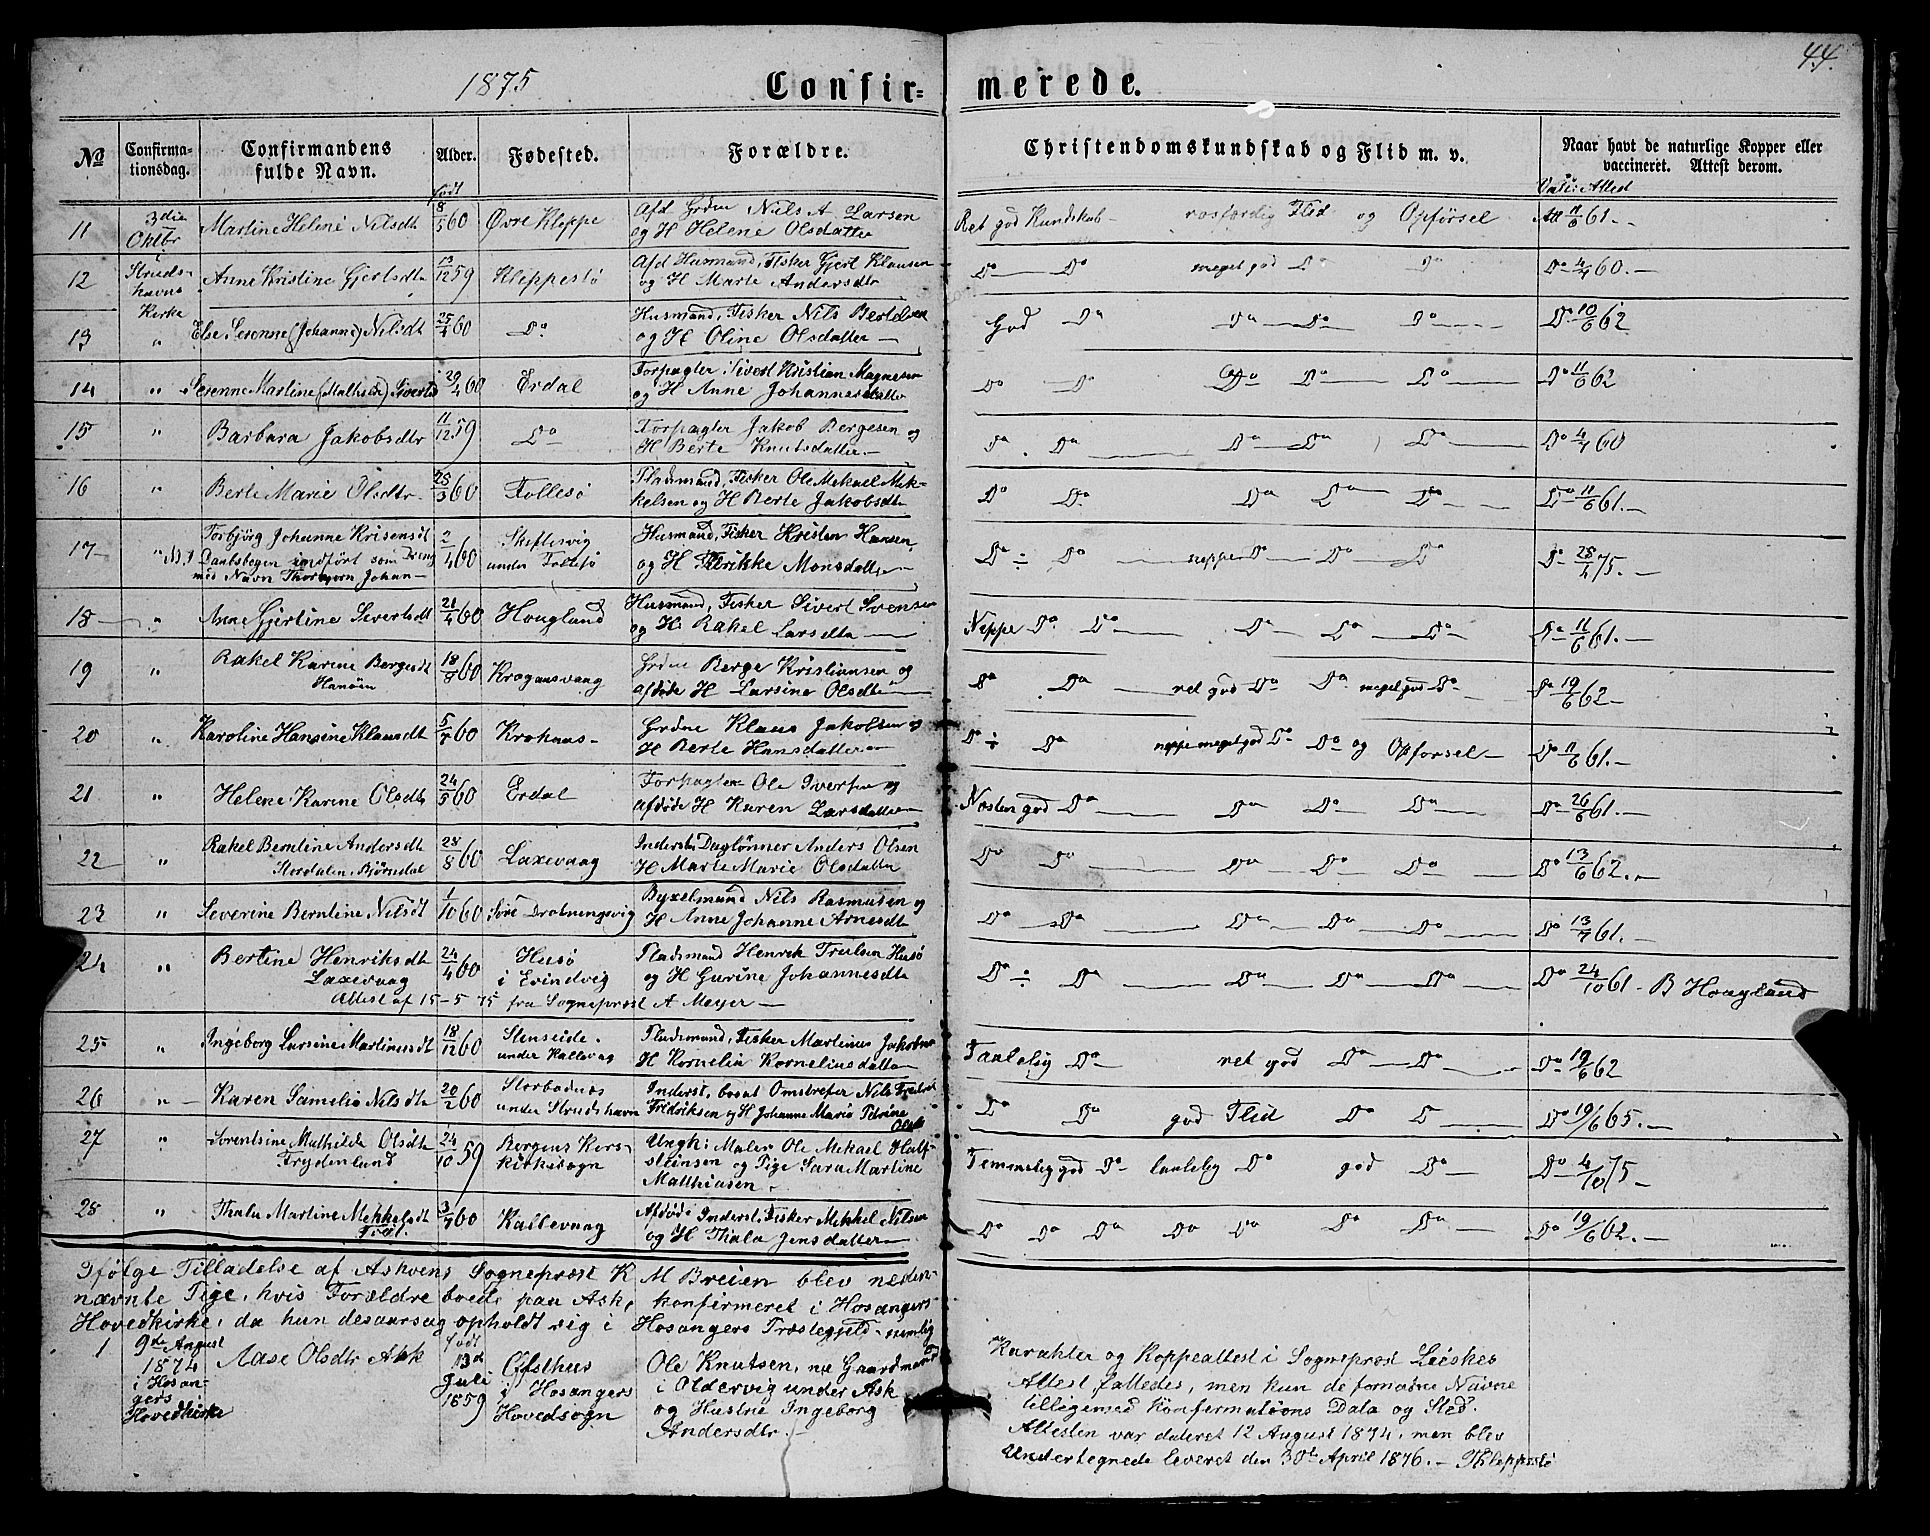 44.
1875
Confirmerede.
No
Confirma-
tionsdag.
Confirmandens
fulde Navn.
Alder.
født
Fødested.
Forældre.
Christendomskundskab og Flid m. v.
Naar havt de naturlige Kopper eller
vaccineret. Attest derom.
Attest
11 3die Oktbr Martine Helene Nilsdt 8/5 60 Øvre Kleppe Afd Grdm Niels A. Larsen
og H Helene Olsdatter
Ret god Kundskab - rosværdig Flid og Opførsel Att 11/6 61.-
12 i Struds- havns Kirke Anne Kristine Gjertsdtr 13/12 59 Kleppestø Afd Husmand, Fisker Gjert Klausen
og H Marte Andersdtr
Do Do meget god Do Do Do 4/7 60.-
13 " Else Serenne (Johanne) Nilsdt 25/4 60 Do Husmand, Fisker Nils Bertelsen
og H Oline Olsdatter
God Do Do Do Do Do 10/6 62
14 " Serenne Martine (Mathilde) Sivertsd 29/4 60 Erdal Forpagter Sivert Kristian Magnesen
og H Anne Johannesdatter
Do Do Do Do Do Do 11/6 62
15 " Barbara Jakobsdtr 11/12 59 Do Forpagter Jakob Bergesen og
H Berte Knutsdatter
Do Do Do Do Do Do 4/7 60
16 " Berte Marie Olsdtr 28/3 60 Follesø Pladsmand, Fisker Ole Mekael Mek-
kelsen og H Berte Jakobsdtr
Do Do Do Do Do Do 11/6 61.
17 " Torbjørg Johanne Krisensdt
Daabsbogen indført som Dreng
med Navn Thorbjørn Johan
2/4 60 Skiftesvig
under Follesø
Husmand, Fisker Kristen Hansen
og H Monsdatter
Do ÷ Do neppe Do Do Do Do 28/4 75.-
18 " Anne Gjertine Sivertsdt 21/4 60 Hougland Husmand, Fisker Sivert Svensen
og H Rakel Larsdtr
Neppe Do Do Do Do Do Do 11/6 61.-
19 " Rakel Karine Bergesdt
Hanøen
18/8 60 Krogaasvaag Grdm Berge Kristiansen og
afdøde H Larsine Olsdtr
Do Do ret god Do Do meget god Do Do 19/6 62-
20 " Karoline Hansine Klausdt 5/7 60 Krokaas- Grdm Klaus Jakobsen og
H Berte Hansdatter
Do ÷ Do neppe meget god Do Do og Opførsel Do 11/6 61.-
21 " Helene Karine Olsdtr 24/5 60 Erdal Forpagter Ole Iversen og
Afdøde H Karen Larsdatter
Næsten god Do Do Do Do Do 26/6 61.-
22 " Rakel Berntine Andersdt
Stordalen, Bjørndal
28/8 60 Laxevaag Inderst, Daglønner Anders Olsen
H Marte Marie Olsdatter
Do Do Do Do Do Do 13/6 62.-
23 " Severine Berntine Nilsdt 1/10 60 Søre Drotningsvig Byxelmand Nils Rasmusen og
H Anne Johanne Arnesdtr
Do Do Do Do Do Do 13/7 61.-
24 " Bertine Henriksdtr
Laxevaag
24/4 60 Husø
i Evindvig
Pladsmand Henrik Trulsen Husø
og H Gurine Johannesdtr
Attest af 15-5 75 fra Sogneprest A Meyer
Do ÷ Do Do Do Do Do 24/10 61- B Hougland
25 " Ingeborg Larsine Martinusdt 18/12 60 Stenseide
under Kallevag
Pladsmand, Fisker Martinus Jakobsen
H Kornelia Korneliusdatter
Taalelig Do ret god Do Do Do 19/6 62
26 " Karen Samelia Nilsdtr 20/2 60 Storbadnæs
under Strudshavn
Inderst, bosat Omstreifer Nils Fredrik
Fridriksen og H Johanne Marie Petrine Olsdt
Do Do god Flid Do Do Do 19/6 65.-
27 " Sørentsine Mathilde Olsdtr
Frydenlund
24/10 59 Bergens Kors-
kirkesogn
Ungk: Maler Ole Mekael Half-
steinsen og Pige Sara Martine
Matthiasen
Temmelig god Do taalelig Do god Do Do 4/10 75-
28 " Thala Martine Mekkelsdt
3/7 60 Kallevaag Afdøde Inderst, Fisker Mekkel Nilsen
og H Thala Jensdatter
Do Do Do Do Do Do Do Do 19/6 62.-
Ifølge Tilladelse af Askøens Sogneprest K M Breien blev neden-
nævnte Pige, hvis Forældre boede paa Ask, konfirmeret i Hosangers
Hovedkirke, da hun desaarsag opholdt sig i Hosangers Præstegjeld - nemlig
1 9de August
1874
i Hosan-
gers
Hovedkirke
Aase Olsdtr Ask
født
13d
Juli
1859
Øfsthus
i Hosangers
Hovedsogn
Ole Knutsen, nu Gaardmand
i Oldervig under Ask
og Hustrue Ingeborg
Andersdtr.-
Karakter og Koppeattest i Sogneprest
Attest falledes, men kun de fornødne Navne
tilligemed Konfirmations Data og Sted.
Attesten var dateret 12 August 1874, men blev
Undertegnede leveret den 30te April 1876.-